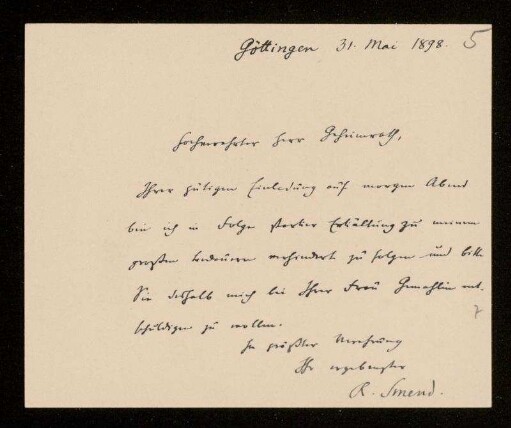 Göttingen 31. Mai 1898. 5
Hochverehrter Herr Geheimrath,
Ihrer gütigen Einladung auf morgen Abend
bin ich in Folge starker Erkältung zu meinem
großen Bedauern verhindert zu folgen und bitte
Sie deshalb mich bei Ihrer Frau Gemahlin ent-
schuldigen zu wollen.
In größter Verehrung
Ihr ergebenster
R. Smend.